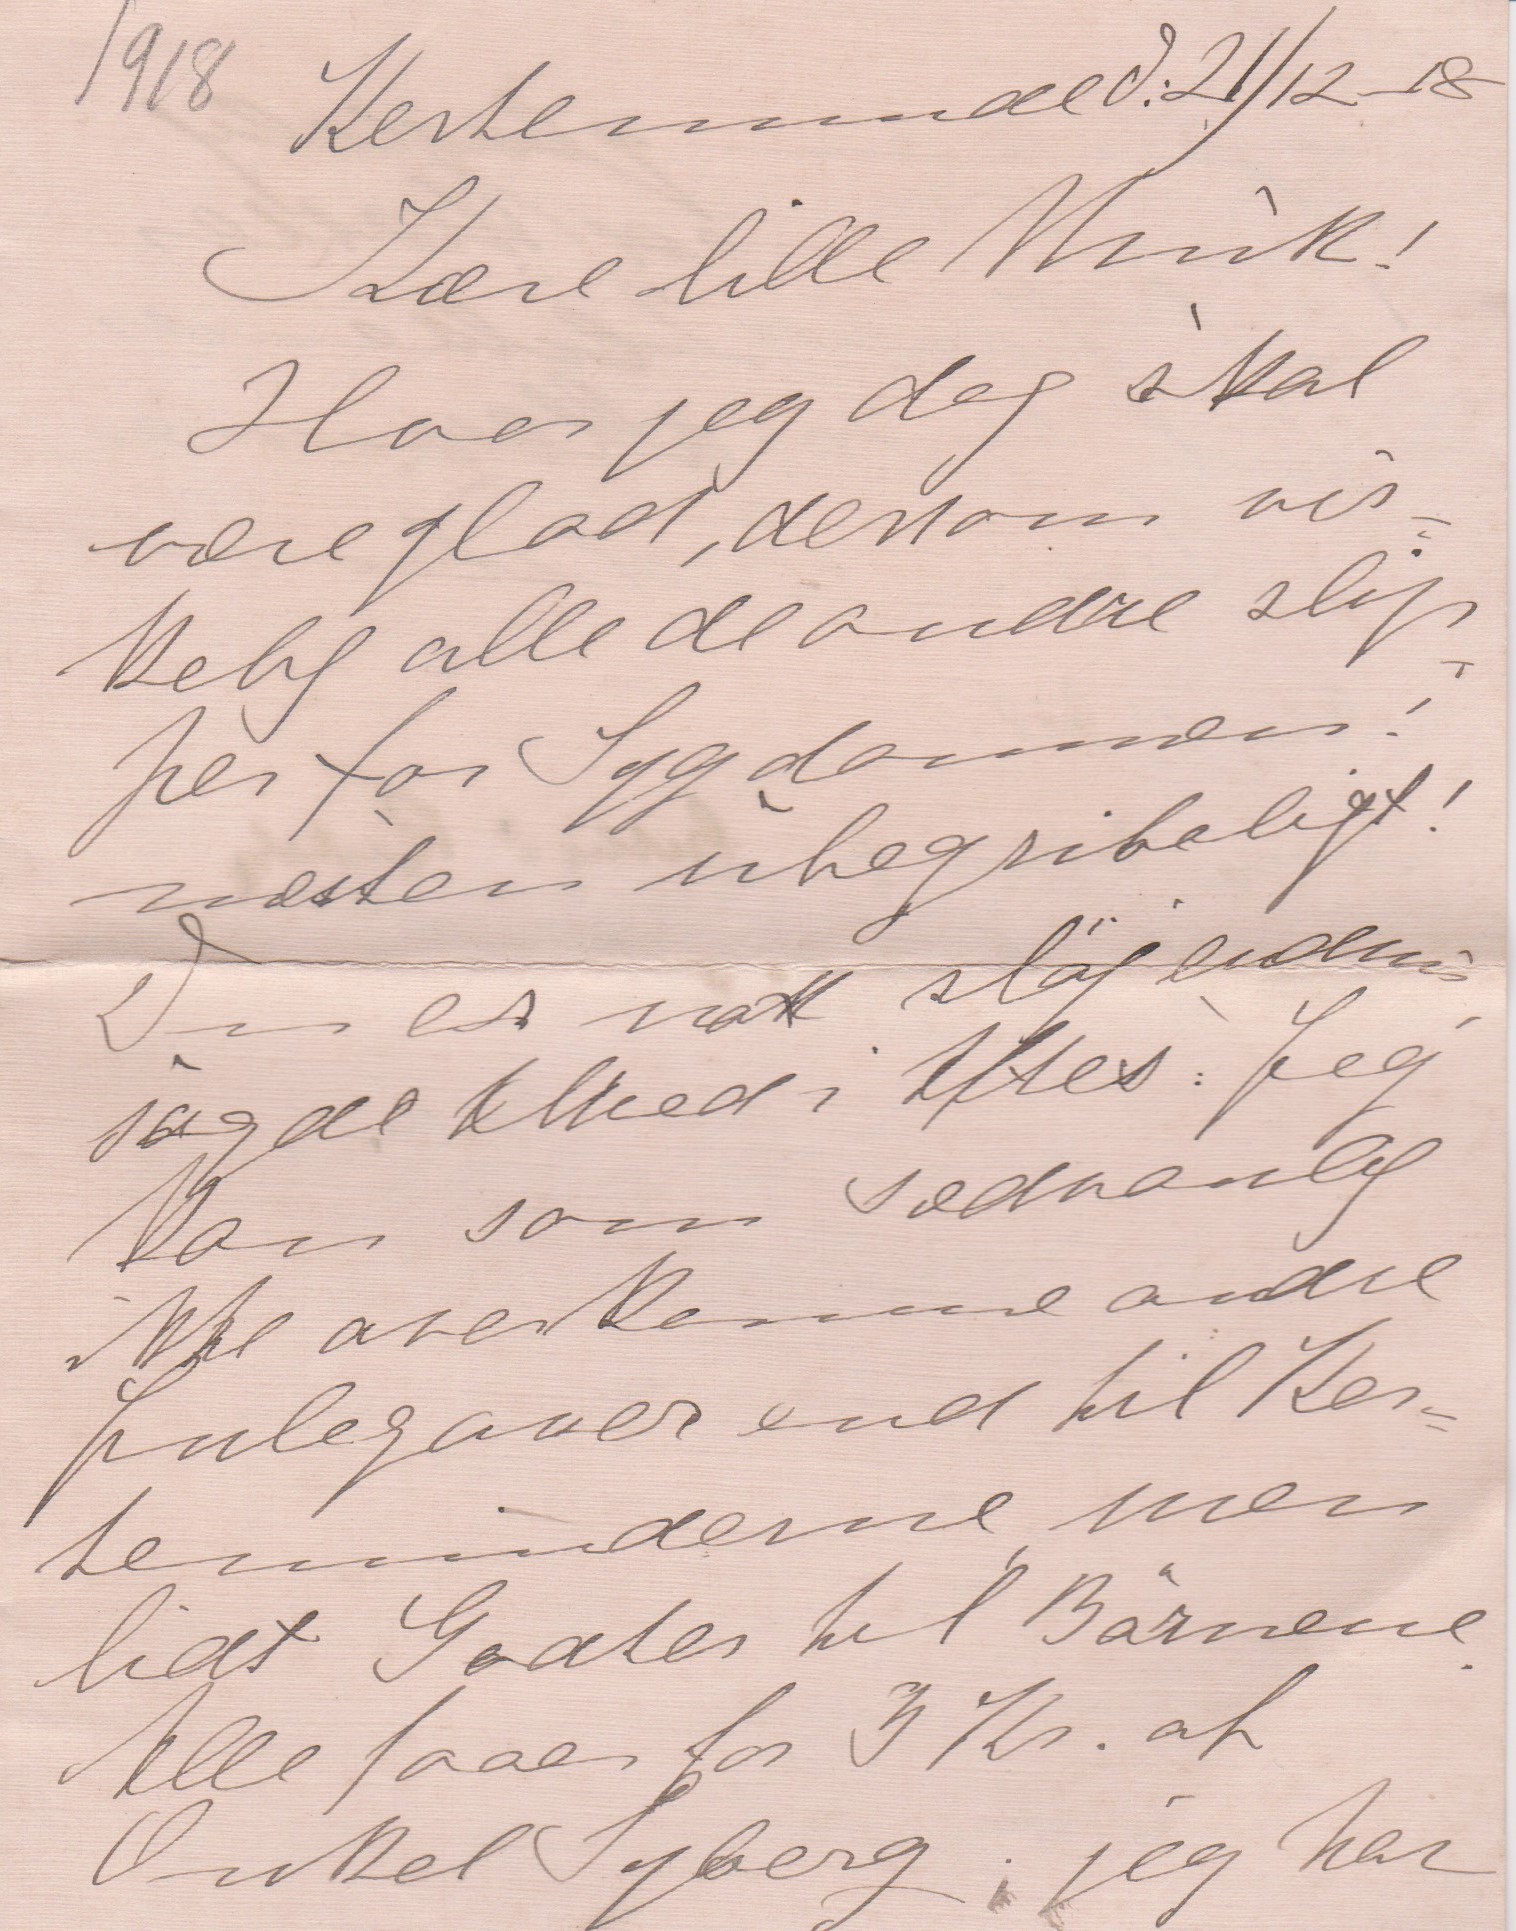 1918
Kerteminde d: 21/12-18
Kære lille Munk!
Hvor jeg dog skal
være glad, dersom vir=
kelig alle de andre slip=
per for Sygdommen!
næsten ubegribeligt!
Du er nok sløj endnu
sagde Alhed i Aftes. Jeg
kan som sædvanlig
ikke overkomme andre
Julegaver end til Ker=
teminderne, men
lidt Godter til Børnene.
Alle faaer for 3 Kr. af
Onkel Syberg; jeg har